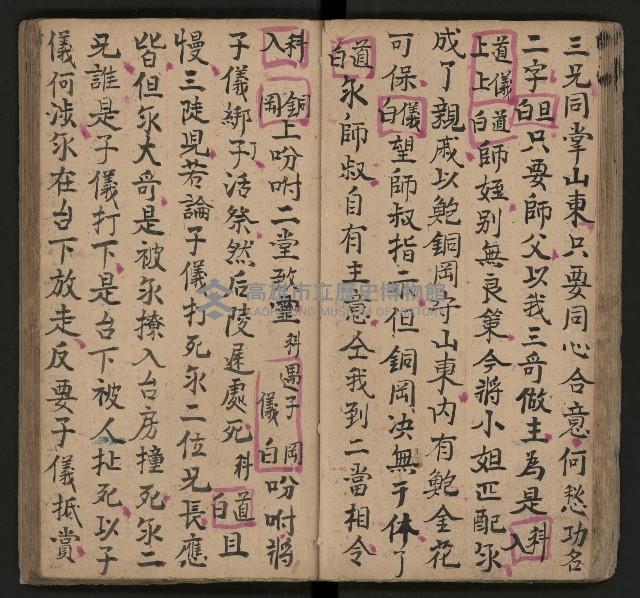 三兄同掌山東只要同心合意何愁功名
二字白旦只要師父以我三哥做主為是入科
上道上儀白道師姪別無良策今將小姐匹配尔
成了親戚以鮑銅岡子山東内有鮑金花
可保白儀望師叔指二但銅岡决無干休了
白道尔師叔自有主意仝我到二當相令
入科岡銅上吩咐二堂敨靈科愚子儀岡白吩咐將
子儀綁子活祭然后陵遲處死科白道且
慢三陡兄若論子儀打死尔二位兄長應
皆但尔大哥是被尔撩入台房撞死尔二
兄誰是子儀打下是台下被人扯死以子
儀何涉尔在台下放走反要子儀抵賞
高雄市立歷史博物館
KAOHSIUNG MUSEUM OF HISTORY